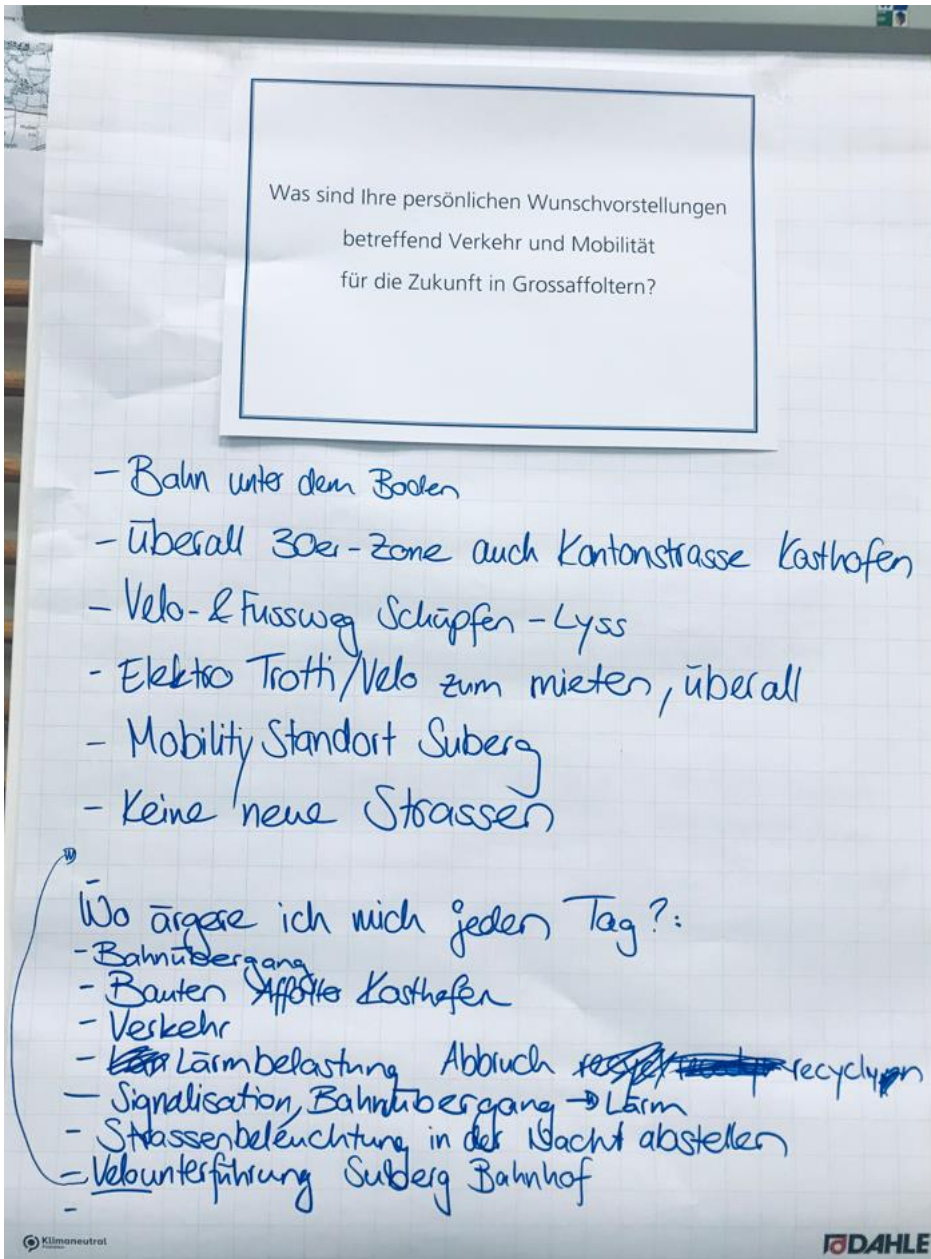 Was sind Ihre persönlichen Wunschvorstellungen
betreffend Verkehr und Mobilität
für die Zukunft in Grossaffoltern?
- Bahn unter dem Boden
- Überall 30er-Zone auch Kantonstrasse Kosthofen
- Velo- & Fussweg Schüpfen - Lyss
- Elektro Trotti/Velo zum mieten, überall
- Mobility Standort Suberg
- Keine neue Strassen
W
-
Wo ärgere ich mich jeden Tag?:
- Bahnübergang
- Bauten Kosthofen
- Verkehr
- Lärmbelastung Abbruch recyclen
- Signalisation, Bahnübergang → Lärm
- Strassenbeleuchtung in der Nacht abstellen
- Velounterführung Suberg Bahnhof
-
Klimaneutral
DAHLE